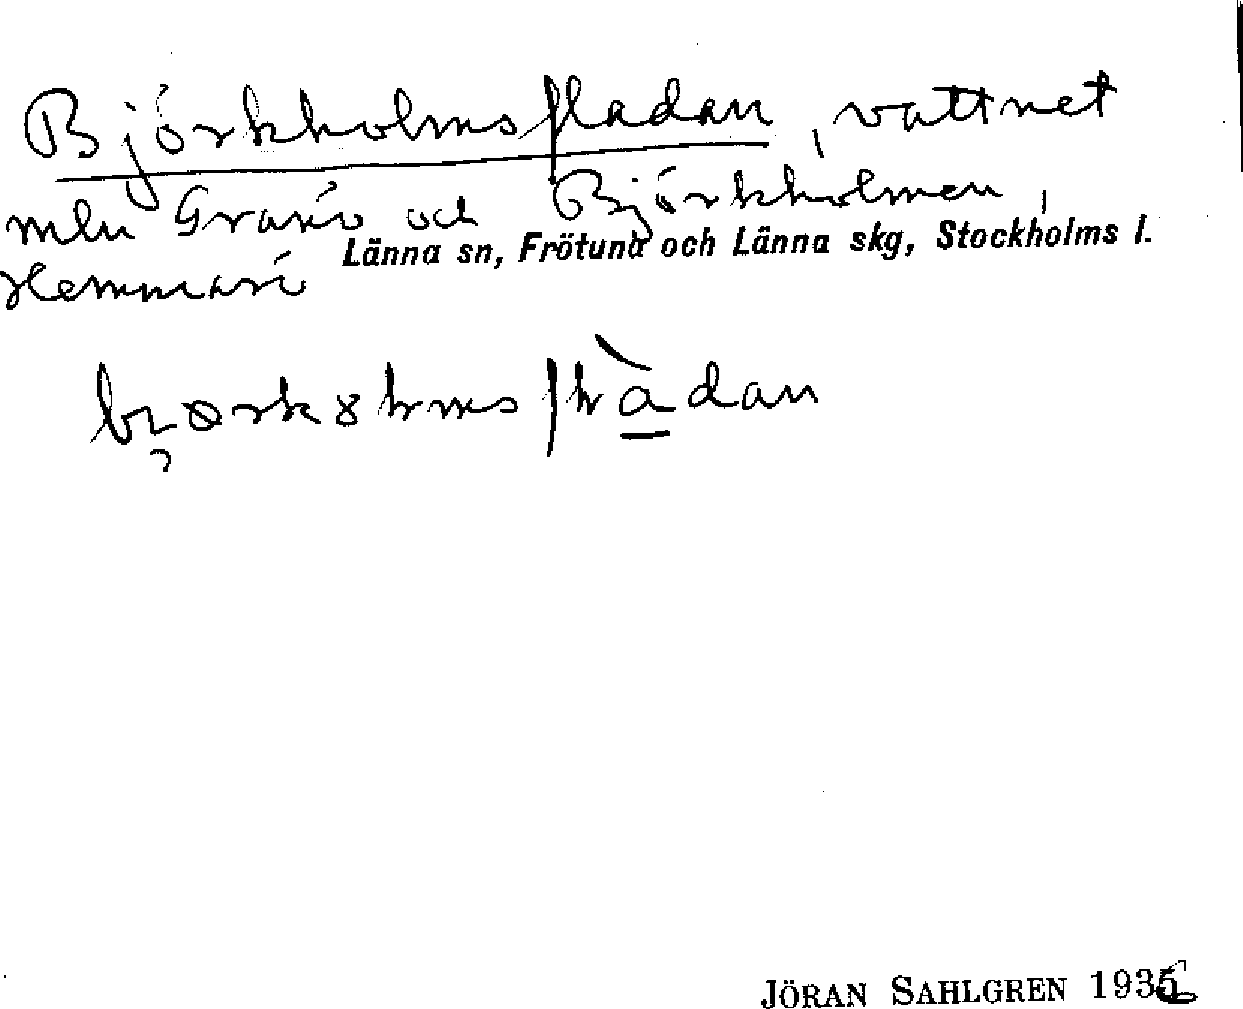 Björkholmsfladan, vattnet
mln Granö och Björkholmen,
Länna sn, Frötuna och Länna skg, Stockholms l.
Hemmarö
JÖRAN SAHLGREN 1936